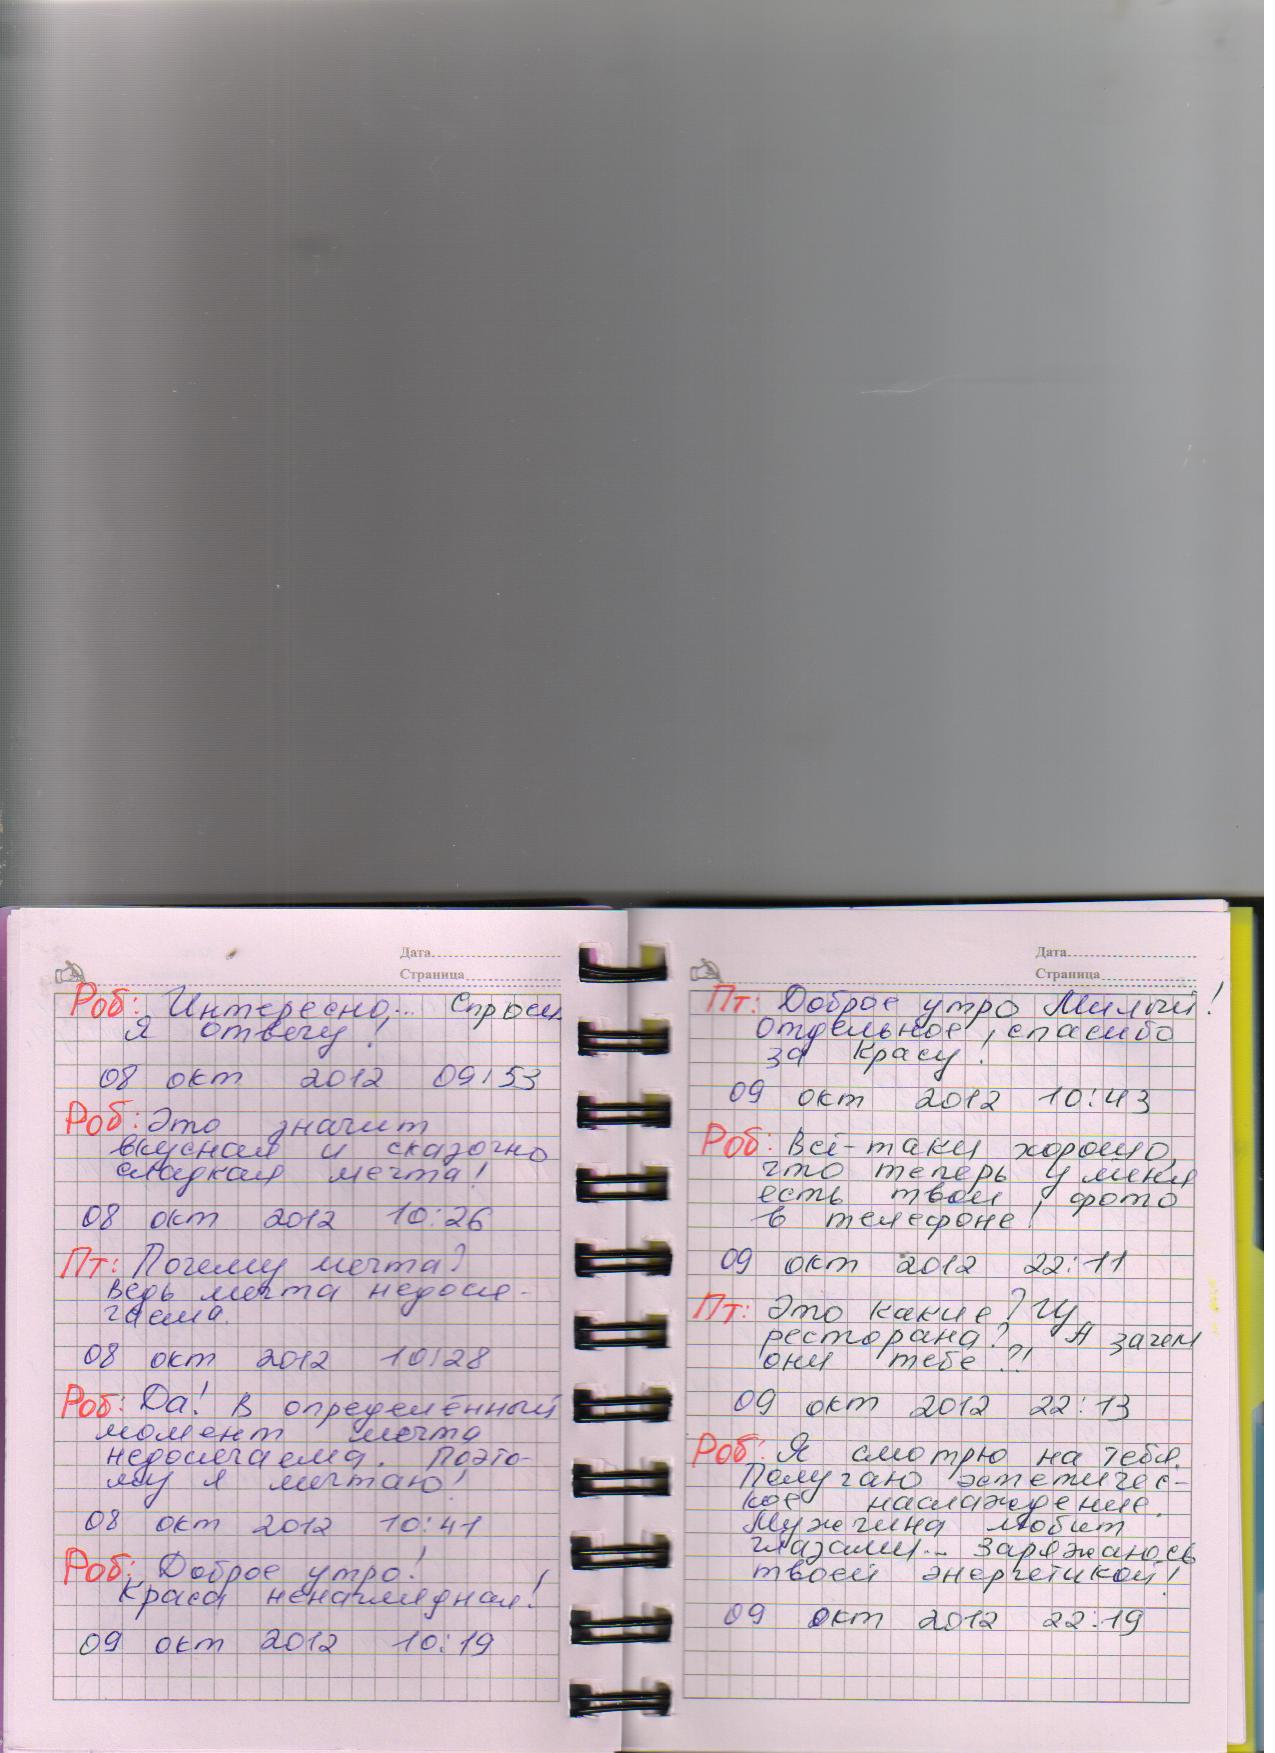 Дата
Страница
Роб: Интересно... Спроси,
я отвечу!
08 окт 2012 09:53
Роб: Это значит
вкусная и сказочно
сладкая мечта!
08 окт 2012 10:26
Пт: Почему мечта?
Ведь мечта недося-
гаема.
08 окт 2012 10:28
Роб: Да! В определённый
момент мечта
недосягаема. Поэто-
му я мечтаю!
08 окт 2012 10:41
Роб: Доброе утро!
Краса ненаглядная!
09 окт 2012 10:19
Дата
Страница
Пт: Доброе утро Милый!
Отдельное, спасибо
за Красу!
09 окт 2012 10:43
Роб: Всё-таки хорошо,
что теперь у меня
есть твои фото
в телефоне!
09 окт 2012 22:11
Пт: Это какие? У
ресторана? А зачем
они тебе?!
09 окт 2012 22:13
Роб: Я смотрю на тебя.
Получаю эстетичес-
кое наслаждение.
Мужчина любит
глазами... Заряжаюсь
твоей энергетикой!
09 окт 2012 22:19